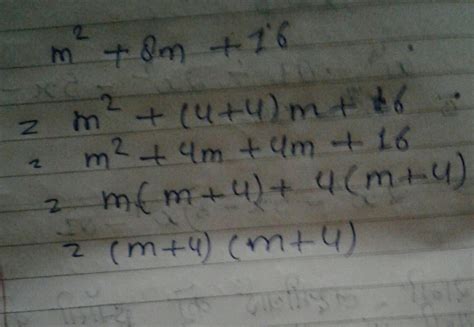 m² + 8m + 16
= m² + (4+4)m + 16
= m² + 4m + 4m + 16
= m(m+4) + 4(m+4)
= (m+4) (m+4)